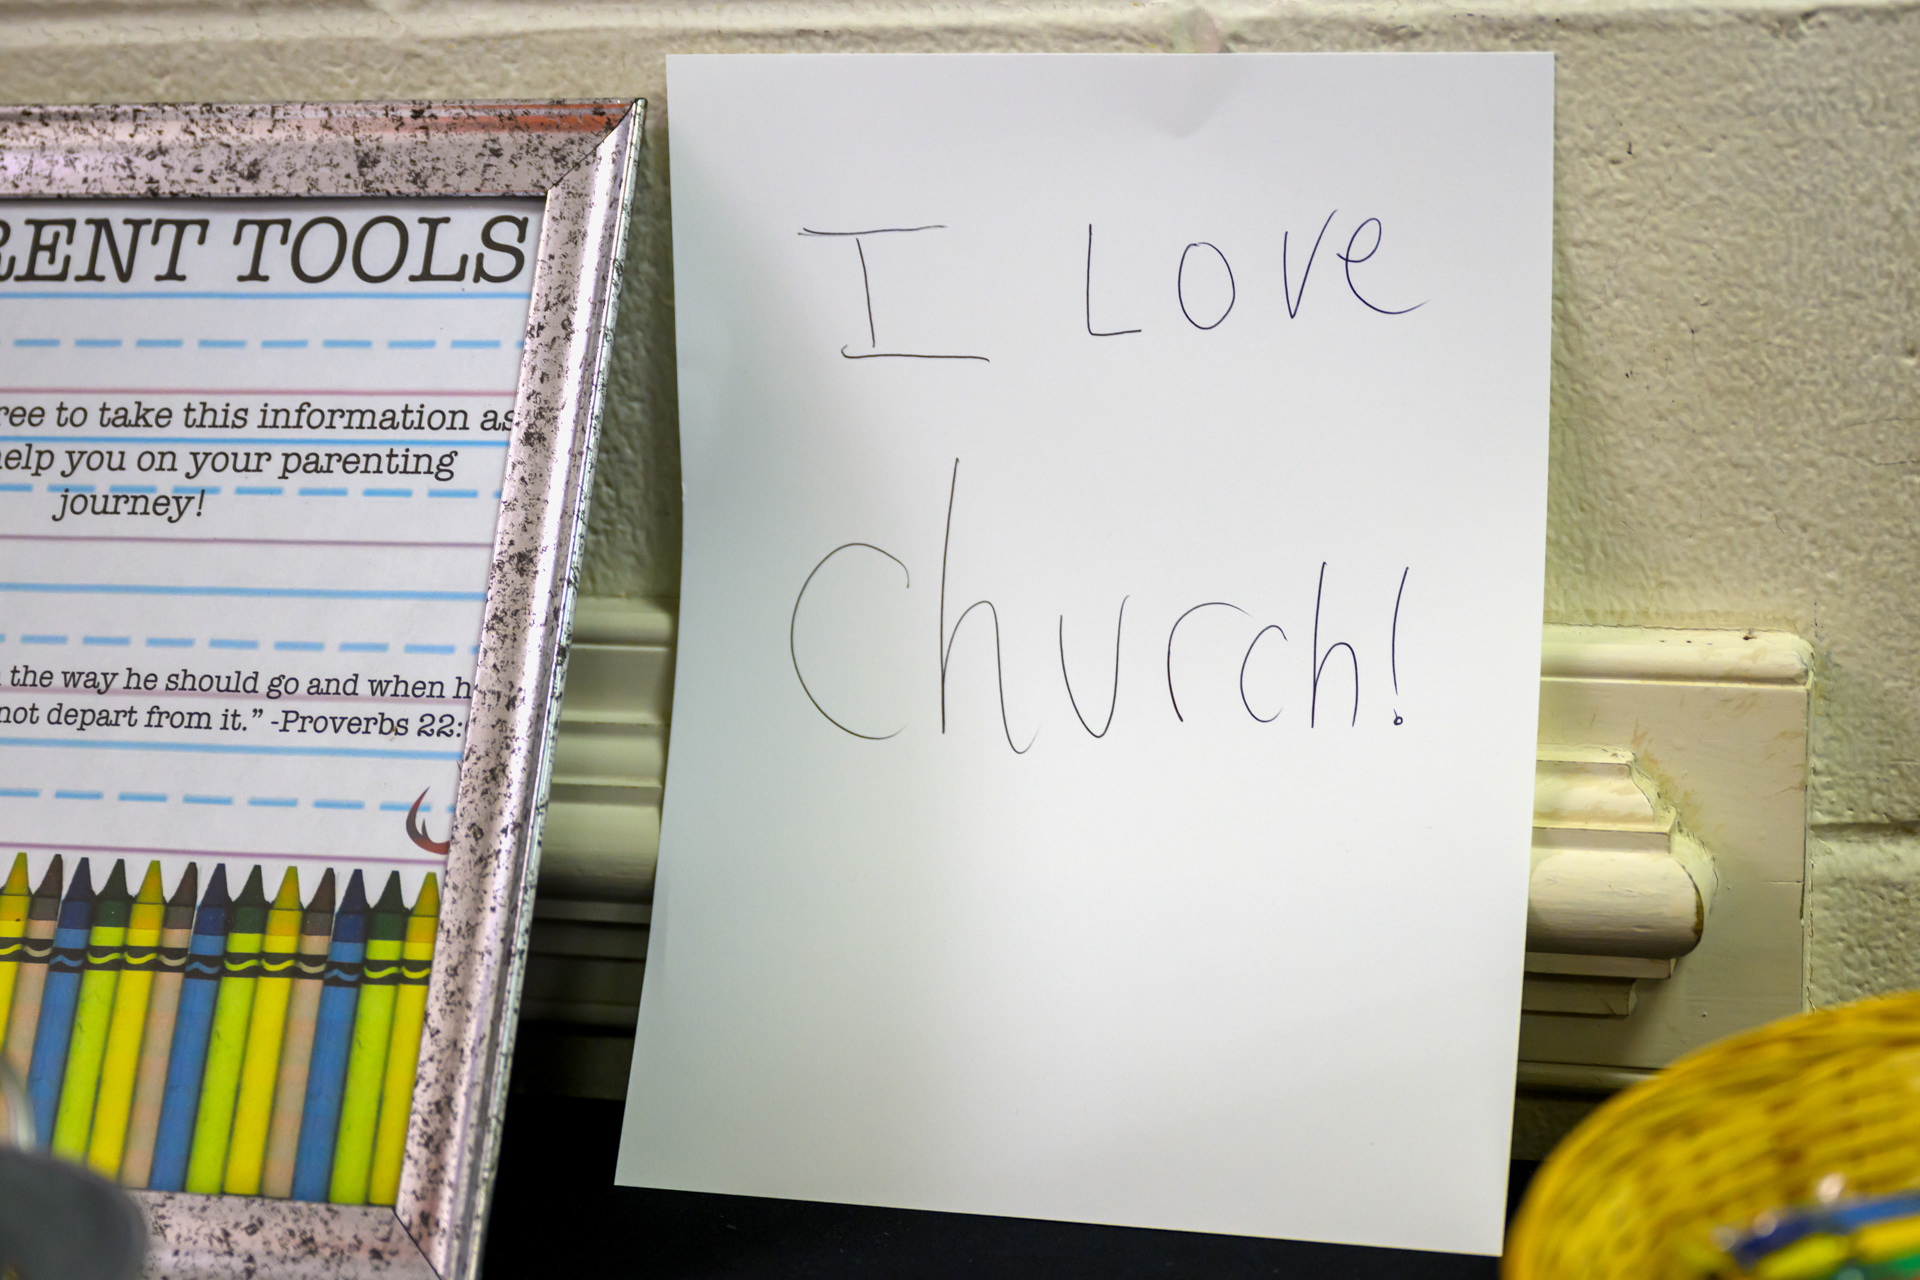 RENT TOOLS
ree to take this information as
elp you on your parenting
journey!
the way he should go and when h
not depart from it.” -Proverbs 22:
I Love
Church!